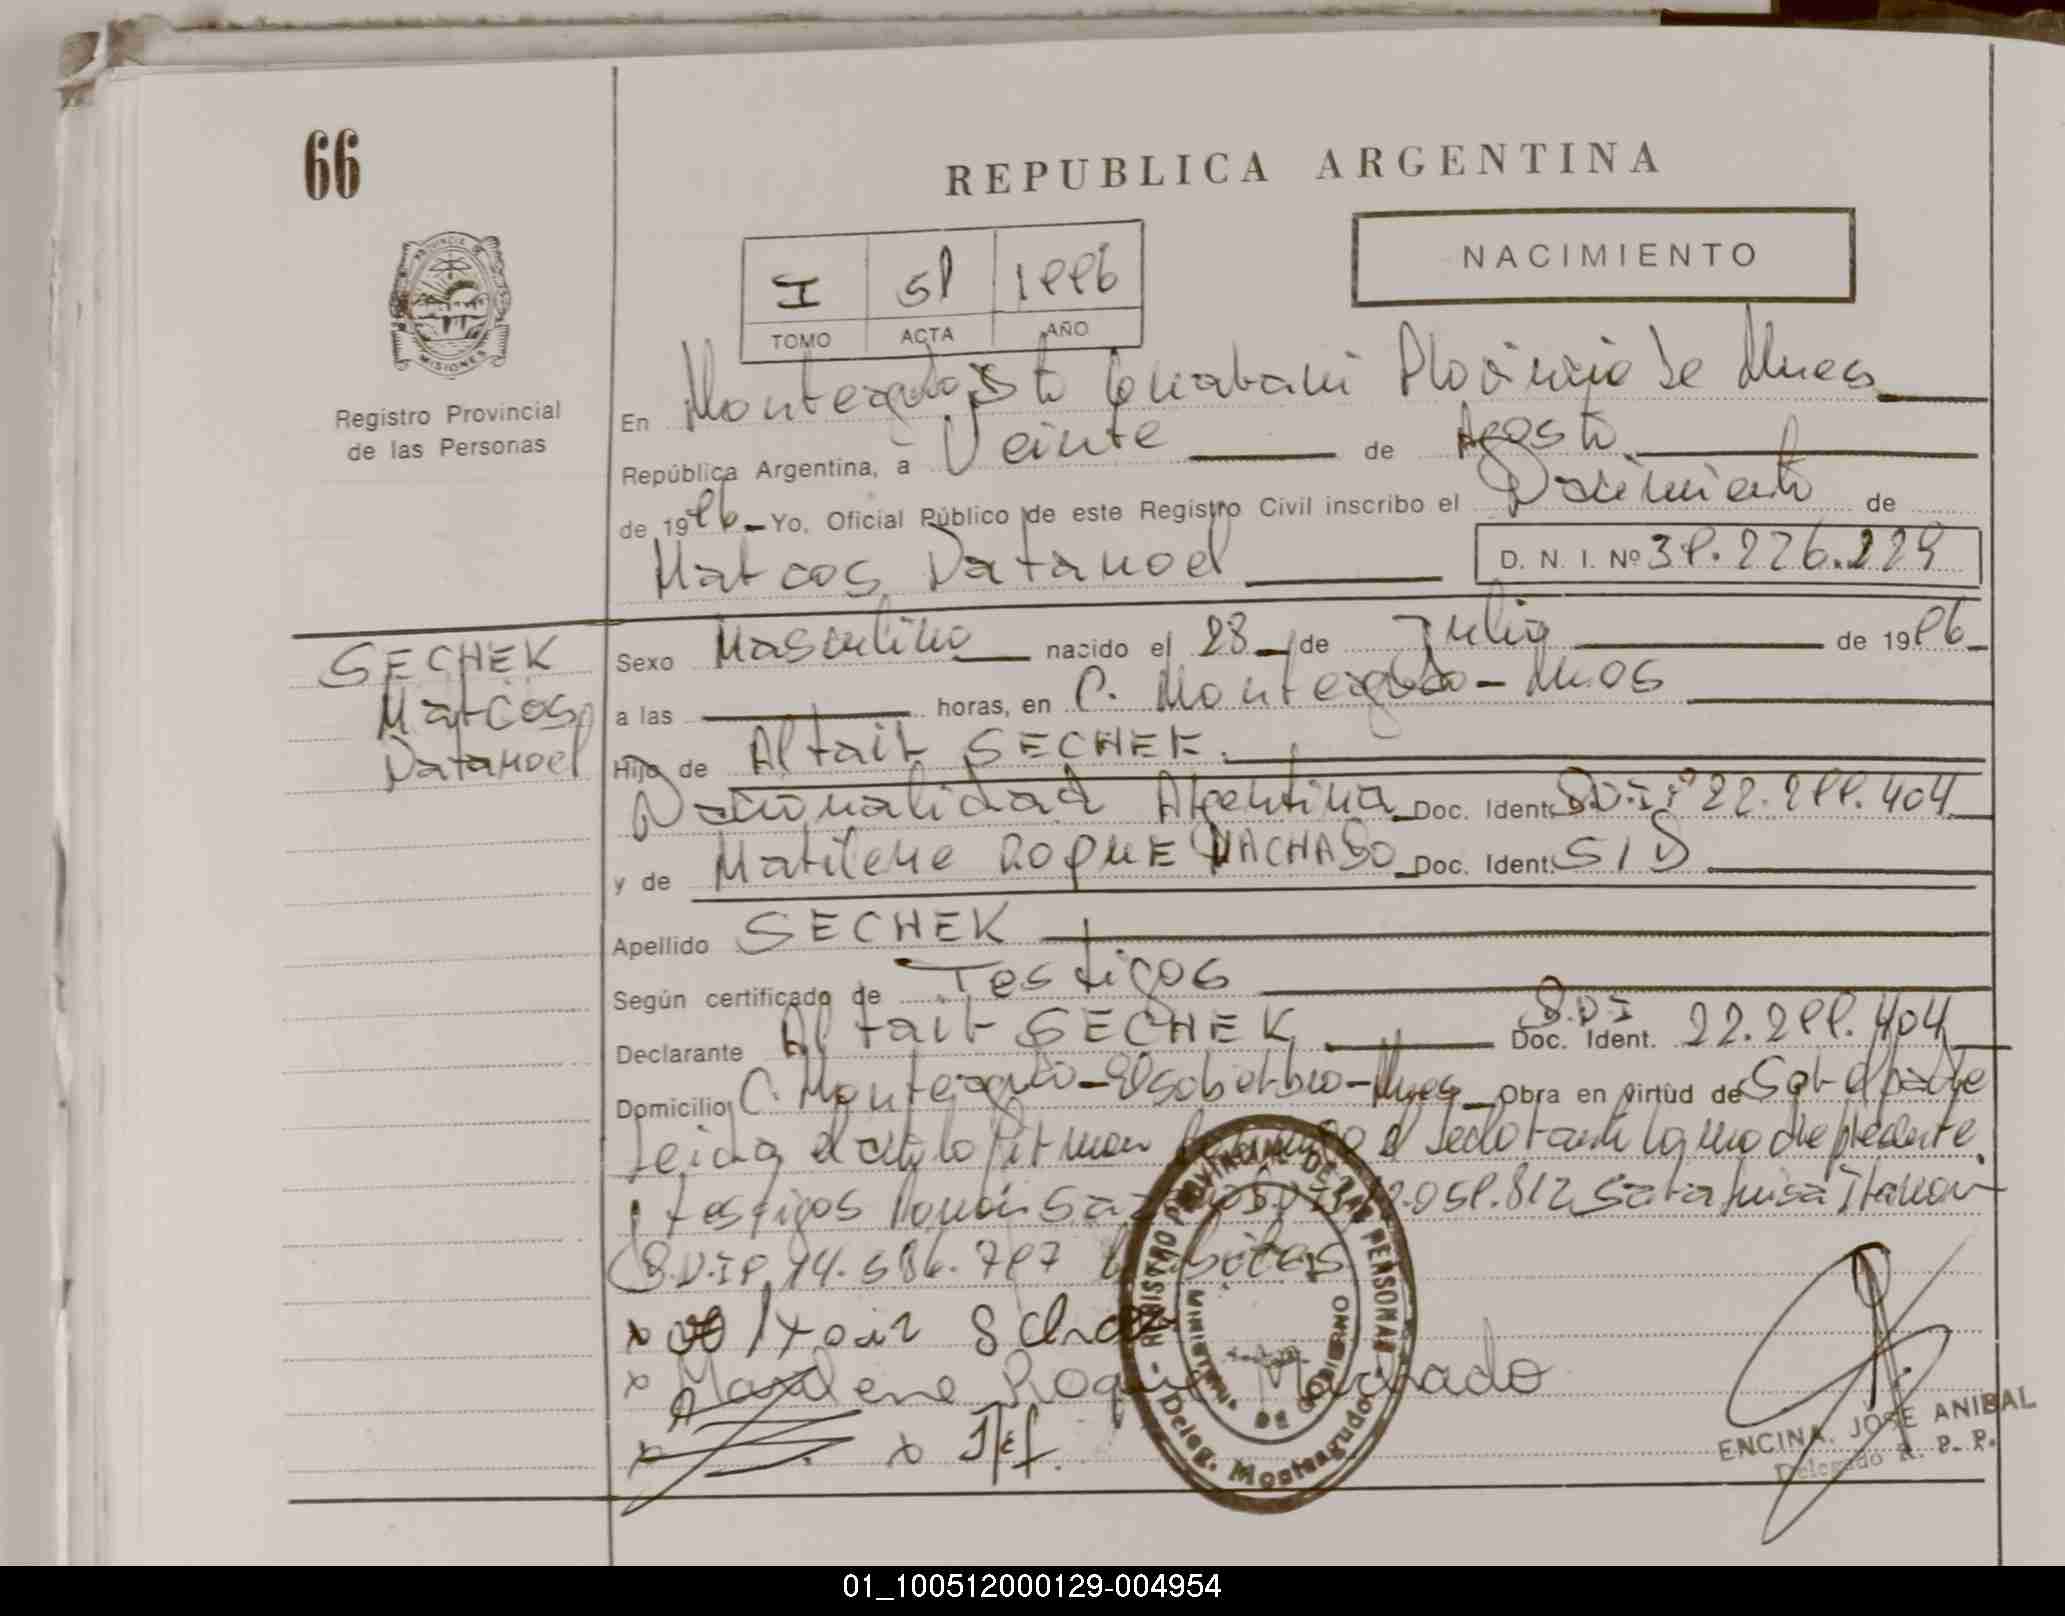 66
REPUBLICA ARGENTINA
NACIMIENTO
I 59 1996
TOMO ACTA AÑO
PROVINCIA DE
MISIONES
Registro Provincial
de las Personas
En Monteagudo Dto Guarani Provincia de Mnes
República Argentina, a Veinte de Agosto
de 1996 Yo, Oficial Público de este Registro Civil inscribo el Nacimiento de
Marcos Natanoel D. N. I. Nº 39.226.229
SECHEK
Marcos
Natanoel
Sexo Masculino nacido el 28 de Julio de 1996
a las horas, en C. Monteagudo - Mnes
Hijo de Altair SECHEK
Nacionalidad Argentina Doc. Ident. 22.299.404
y de Marilene ROQUE MACHADO Doc. Ident. S/D
Apellido SECHEK
Según certificado de Testigos
Declarante Altair SECHEK Doc. Ident. D.N.I 22.299.404
Domicilio C. Monteagudo - El Soberbio - Mnes Obra en virtud de Ser el padre
Leida el acta la firman el declarante la madre presente
y testigos Ramón Sara Luisa
x Altair
x Marilene Roque Machado
x x
REGISTRO PROVINCIAL DE LAS PERSONAS
MINISTERIO DE GOBIERNO
Deleg. Monteagudo
ENCINA, JOSE ANIBAL
Delegado R. P. P.
01_100512000129-004954